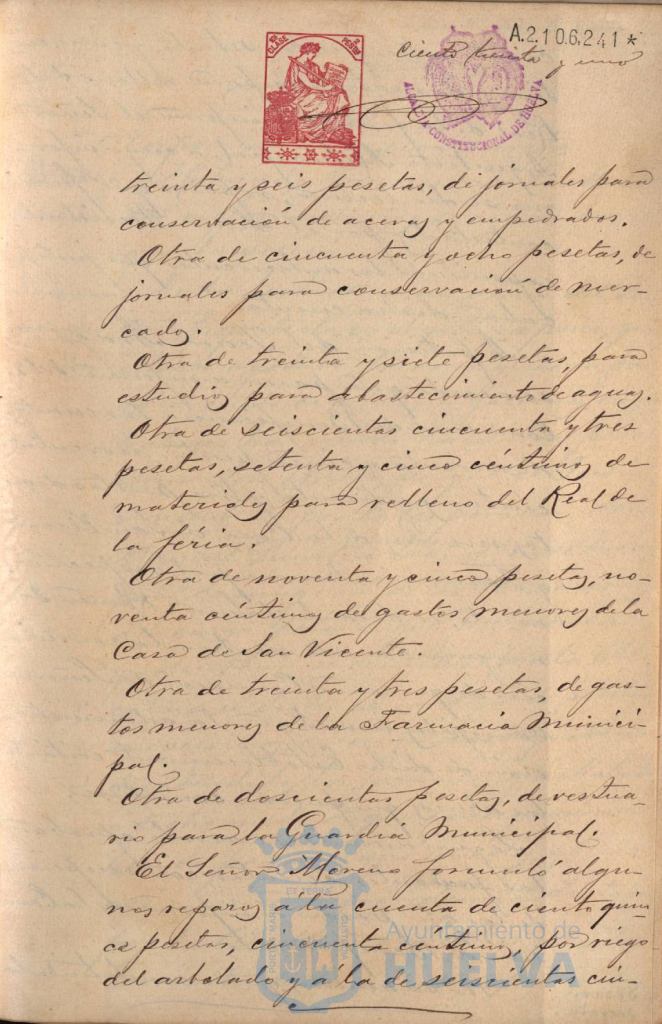 A.2106,241 *
10ª CLASE 2 PESETAS
Ciento treinta y uno
ALCALDIA CONSTITUCIONAL DE HUELVA
treinta y seis pesetas, de jornales para
conservación de aceras y empedrados.
Otra de cincuenta y ocho pesetas, de
jornales para conservación de mer-
cados.
Otra de treinta y siete pesetas, para
estudios para abastecimiento de aguas.
Otra de seiscientas cincuenta y tres
pesetas, setenta y cinco céntimos de
materiales para relleno del Real de
la féria.
Otra de noventa y cinco pesetas, no-
venta céntimos de gastos menores de la
Casa de San Vicente.
Otra de treinta y tres pesetas, de gas-
tos menores de la Farmacia Munici-
pal.
Otra de doscientas pesetas, de vestua-
rio para la Guardia Municipal.
El Señor Moreno formuló algu-
nos reparos á la cuenta de ciento quin-
ce pesetas, cincuenta céntimos, por riego
del arbolado y á la de seiscientas cin-
Ayuntamiento de
HUELVA